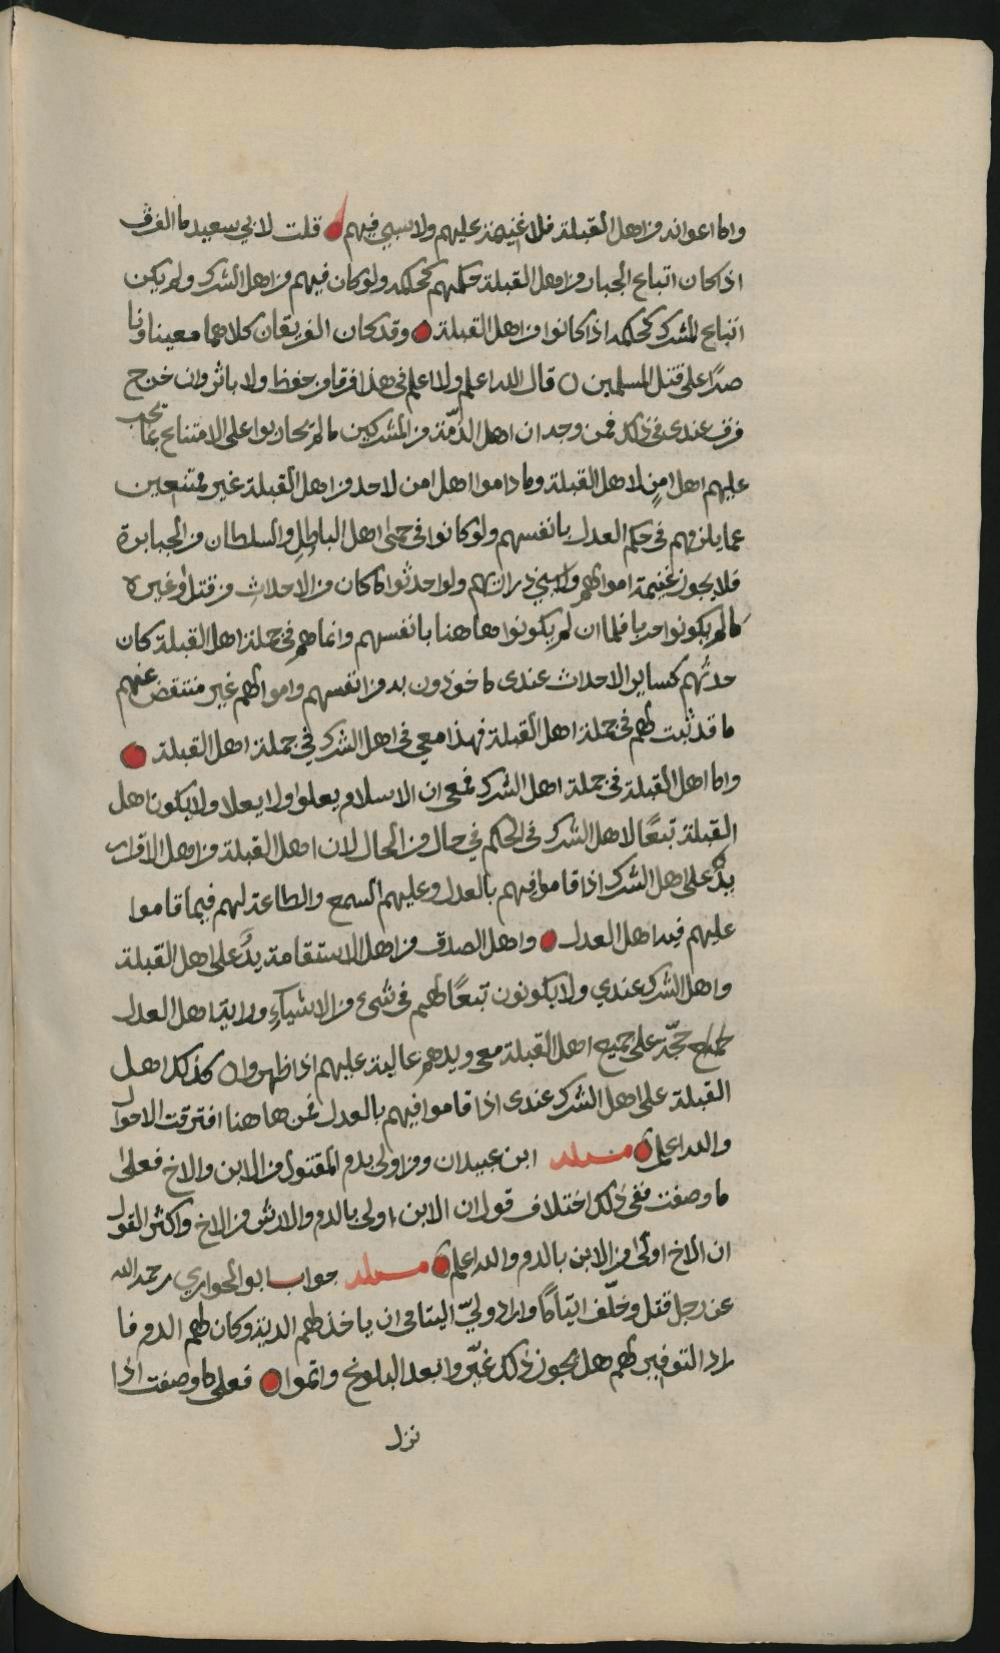 واما اعوانه من اهل القبلة فلا غنيمة عليهم ولا سبي فيهم قلت لابي سعيد ما الفرق
اذا كان اتباع الجبار من اهل القبلة حكمهم كحكمه ولو كان فيهم من اهل الشرك ولم يكن
اتباع المشرك كحكمه اذا كانوا من اهل القبلة وقد كان الفريقان كلاهما معينا
على قتل المسلمين قال الله اعلم ولا اعلم في هذا فرقا من حفظ ولا باثر وان خرج
فرق عندي في ذلك فمن وجد ان اهل الذمة من المشركين ما لم يحاربوا على الامتناع بما يجب
عليهم اهل امن لاهل القبلة وما داموا اهل امن لاحد من اهل القبلة غير ممتنعين
عما يلزمهم في حكم العدل بانفسهم ولو كانوا في حمى اهل الباطل والسلطان من الجبابرة
فلا يجوز غنيمة اموالهم ولا سبي ذراريهم ولو احدثوا ما كان من الاحداث من قتل او غيره
ما لم يكونوا حربا فلما ان لم يكونوا هاهنا بانفسهم وانما هم في جملة اهل القبلة كان
حدثهم كساير الاحداث عندي ماخوذون به من انفسهم واموالهم غير منتقض عنهم
ما قد ثبت لهم في جملة اهل القبلة فهذا معي في اهل الشرك في جملة اهل القبلة
واما اهل القبلة في جملة اهل الشرك فمعي ان الاسلام يعلوا ولا يعلا ولا يكون اهل
القبلة تبعًا لاهل الشرك في الحكم في حال من الحال لان اهل القبلة من اهل الاقرار
يدٌ على اهل الشرك اذا قاموا فيهم بالعدل وعليهم السمع والطاعة لهم فيما قاموا
عليهم فيه اهل العدل واهل الصدق من اهل الاستقامة يدٌ على اهل القبلة
واهل الشرك عندي ولا يكونون تبعًا لهم في شيء من الاشياء وراية اهل العدل
حجّة على جميع اهل القبلة معي ويدهم عالية عليهم اذا ظهروا كذلك اهل
القبلة على اهل الشرك عندي اذا قاموا فيهم بالعدل فمن هاهنا افترقت الاحوال
والله اعلم مسئلة ابن عبيدان ومن اولى بدم المقتول من الابن والاخ فعلى
ما وصفت ففي ذلك اختلاف قول ان الابن اولى بالدم والارش من الاخ واكثر القول
ان الاخ اولى من الابن بالدم والله اعلم مسئلة جواب ابو الحواري رحمه الله
عن رجل قتل وخلّف ايتامًا واراد وليّ اليتامى ان ياخذ لهم الدية وكان لهم الدم فا
راد التوفير لهم هل يجوز ذلك غيّروا بعد البلوغ واتموا فعلى ما وصفت اذا
نزل